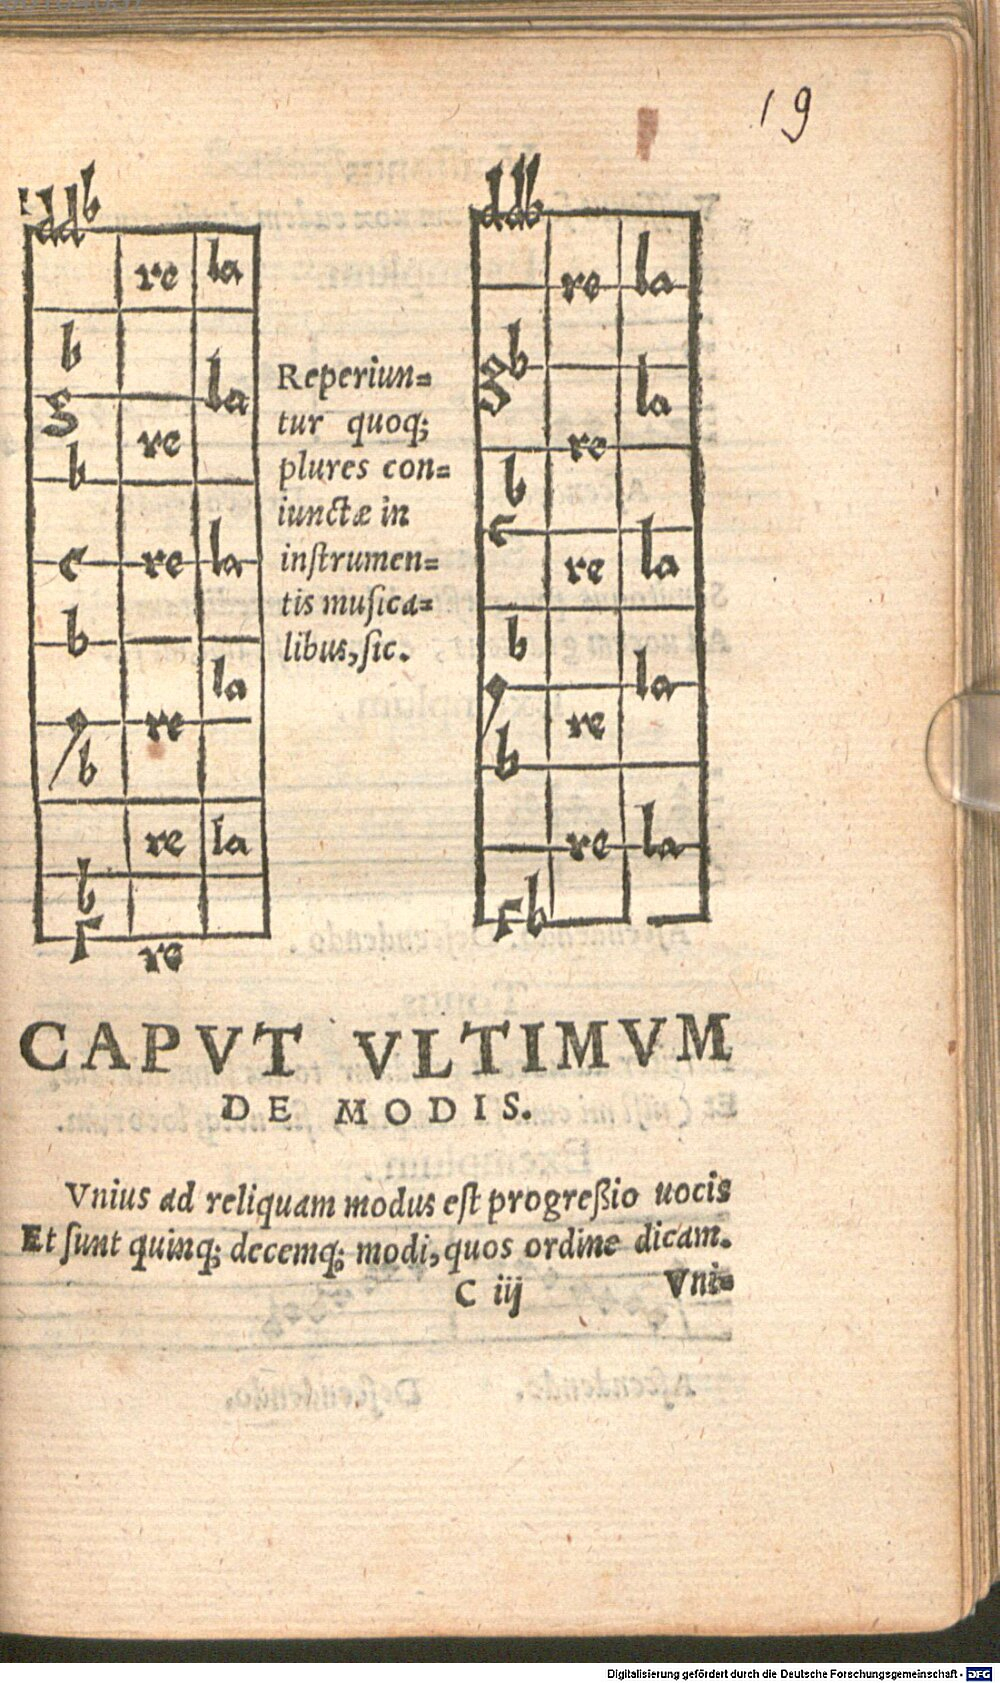 19
ddb
re la
b
la
g
re
b
c re la
b
la
re
b
re la
b
Γ
re
Reperiun=
tur quoq;
plures con=
iunctæ in
inſtrumen=
tis muſica=
libus, ſic.
ddb
re la
gb
la
re
b
c
re la
b
la
re
b
re la
Γb
CAPVT VLTIMVM
DE MODIS.
Vnius ad reliquam modus eſt progreßio uocis
Et ſunt quinq; decemq; modi, quos ordine dicam.
C iij Vni=
Digitalisierung gefördert durch die Deutsche Forschungsgemeinschaft - DFG